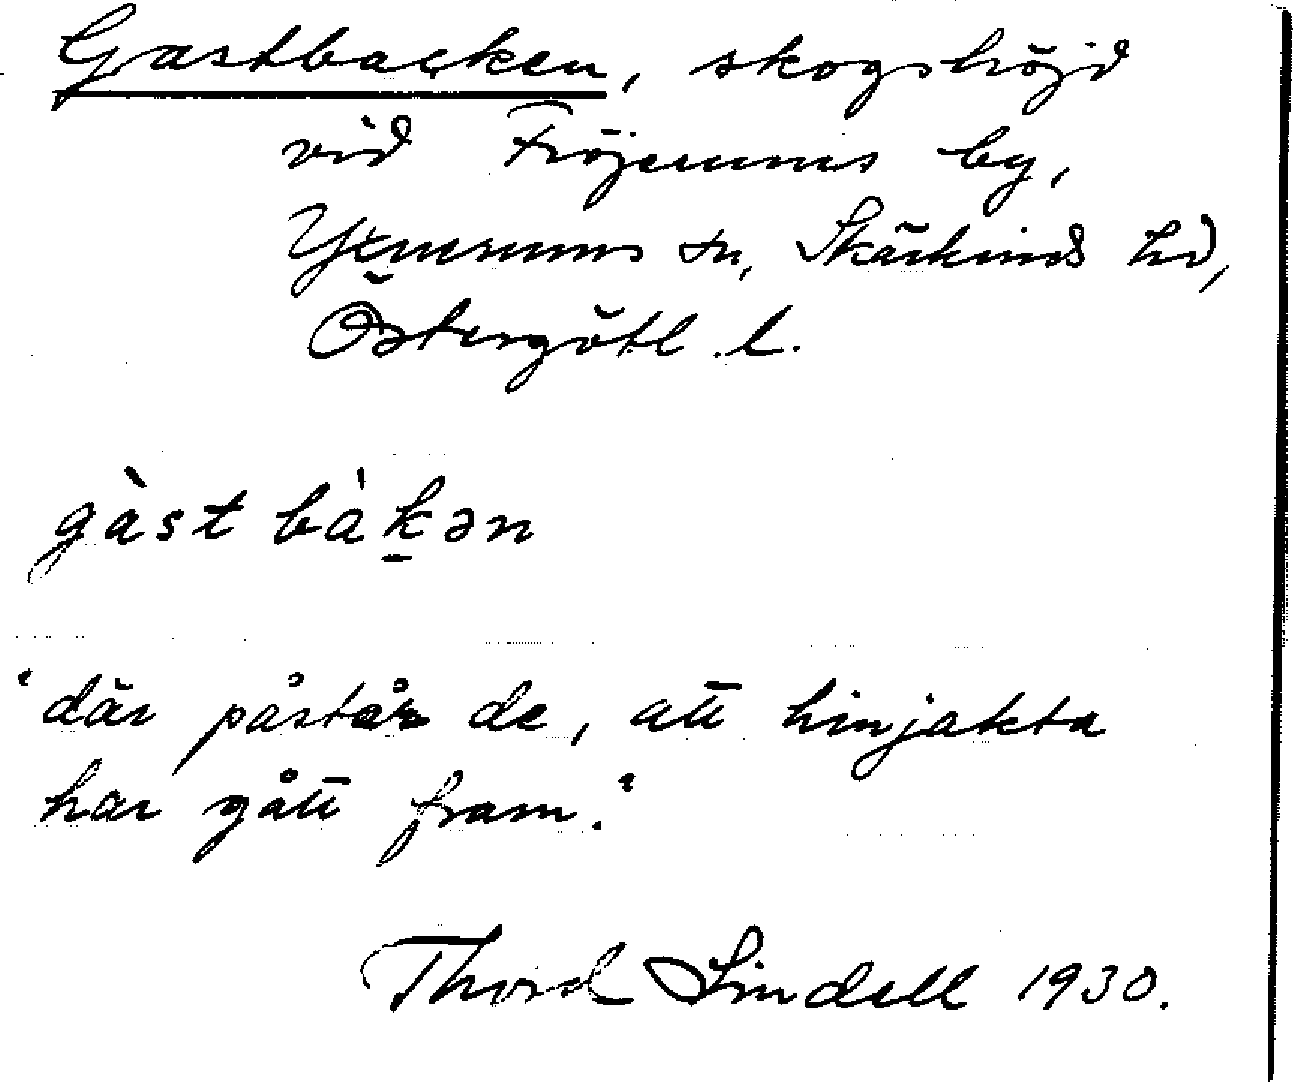 Gastbacken, skogshöjd
vid Fröjerums by,
Yxnerums sn, Skärkinds hd,
Östergötl. l.
gàst bàk̠ən
'där påstår de, att hinjakta
har gått fram.'
Thord Lindell 1930.